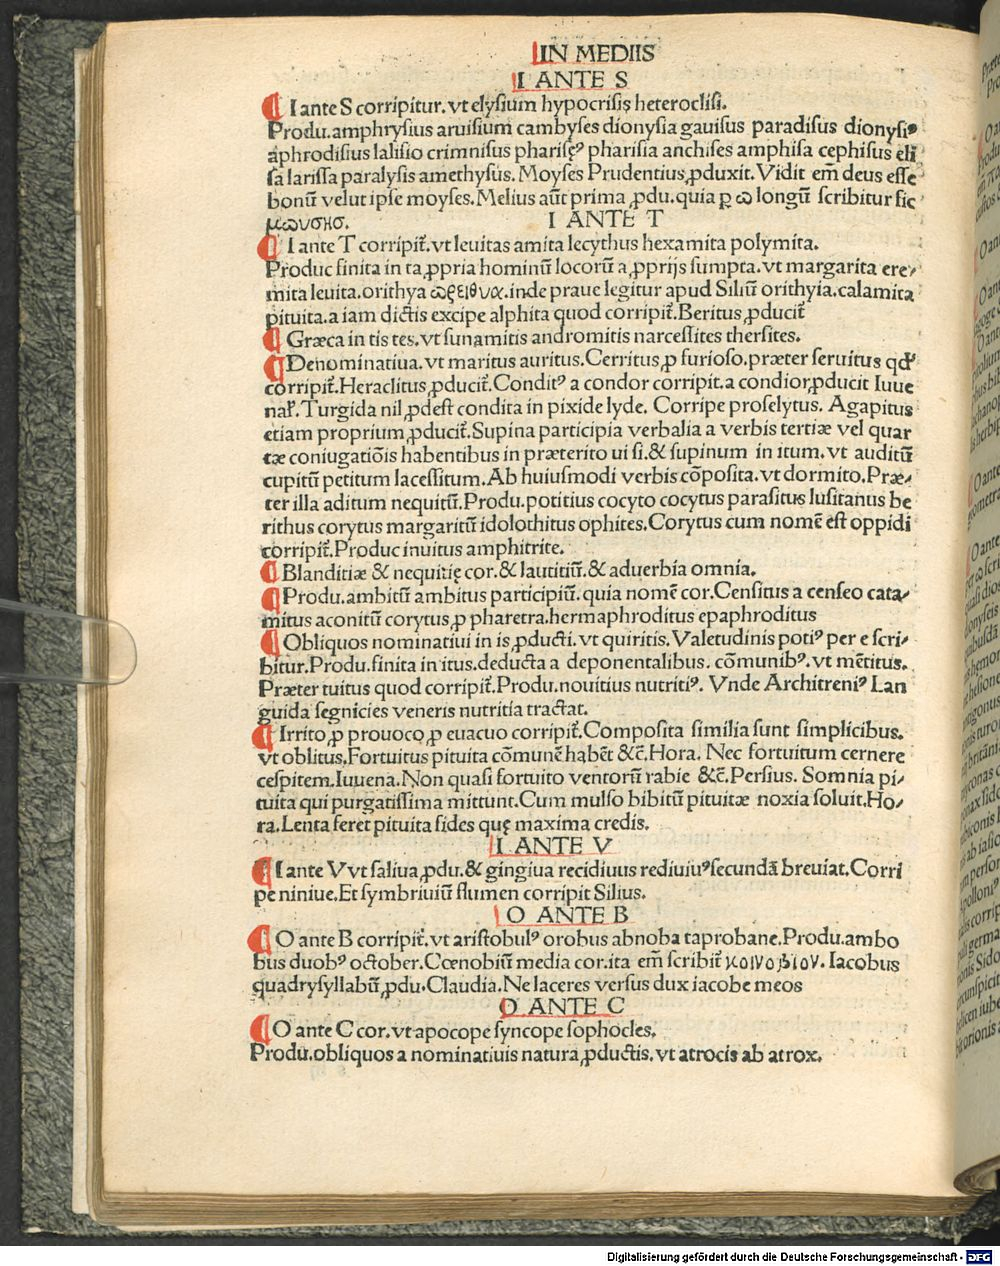 IN MEDIIS
I ANTE S
I ante S corripitur. vt elyſium hypocriſis heterocliſi.
Produ.amphryſius aruiſium cambyſes dionyſia gauiſus paradiſus dionyſiꝰ
aphrodiſius laliſio crimniſus phariſęꝰ phariſia anchiſes amphiſa cephiſus eli
ſa lariſſa paralyſis amethyſus. Moyſes Prudentius ꝓduxit. Vidit em̄ deus eſſe
bonū velut ipſe moyſes. Melius aūt prima ꝓdu. quia ꝑ ω longū ſcribitur ſic
μωυσησ. I ANTE T
I ante T corripit̄. vt leuitas amita lecythus hexamita polymita.
Produc finita in ta ꝓpria hominū locorū a ꝓprijs ſumpta. vt margarita ere⸗
mita leuita. orithya ωρειθυα. inde praue legitur apud Siliū orithyia. calamita
pituita. a iam dictis excipe alphita quod corripit̄. Beritus ꝓducit̄
Græca in tis tes. vt ſunamitis andromitis narceſſites therſites.
Denominatiua. vt maritus auritus. Cerritus ꝓ furioſo. præter ſeruitus qd̓
corripit̄. Heraclitus ꝓducit̄. Conditꝰ a condor corripit. a condior ꝓducit Iuue
nal̓. Turgida nil ꝓdeſt condita in pixide lyde. Corripe proſelytus. Agapitus
etiam proprium ꝓducit̄. Supina participia verbalia a verbis tertiæ vel quar
tæ coniugatiōis habentibus in præterito ui ſi. & ſupinum in itum. vt auditū
cupitū petitum laceſſitum. Ab huiuſmodi verbis cōpoſita. vt dormito. Præ⸗
ter illa aditum nequitū. Produ. potitius cocyto cocytus paraſitus luſitanus be
rithus corytus margaritū idolothitus ophites. Corytus cum nomē eſt oppidi
corripit̄. Produc inuitus amphitrite.
Blanditiæ & nequitię cor. & lautitiū. & aduerbia omnia.
Produ. ambitū ambitus participiū. quia nomē cor. Cenſitus a cenſeo cata⸗
mitus aconitū corytus ꝓ pharetra. hermaphroditus epaphroditus
Obliquos nominatiui in is ꝓducti. vt quiritis. Valetudinis potiꝰ per e ſcri⸗
bitur. Produ. finita in itus. deducta a deponentalibus. cōmunibꝰ. vt mētitus.
Præter tuitus quod corripit̄. Produ. nouitius nutritiꝰ. Vnde Architreniꝰ Lan
guida ſegnicies veneris nutritia tractat.
Irrito ꝓ prouoco ꝓ euacuo corripit̄. Compoſita ſimilia ſunt ſimplicibus.
vt oblitus. Fortuitus pituita cōmunē habēt &c̄. Hora. Nec fortuitum cernere
ceſpitem. Iuuena. Non quaſi fortuito ventorū rabie &c̄. Perſius. Somnia pi⸗
tuita qui purgatiſſima mittunt. Cum mulſo bibitū pituitæ noxia ſoluit. Ho⸗
ra. Lenta feret pituita ſides quę maxima credis.
I ANTE V
I ante V vt ſaliua ꝓdu. & gingiua recidiuus rediuiuꝰ ſecundā breuiat. Corri
pe niniue. Et ſymbriuiū flumen corripit Silius.
O ANTE B
O ante B corripit̄. vt ariſtobulꝰ orobus abnoba taprobane. Produ. ambo
bus duobꝰ october. Cœnobiū media cor. ita em̄ ſcribit̄ κοινοβιον. Iacobus
quadryſyllabū ꝓdu. Claudia. Ne laceres verſus dux iacobe meos
O ANTE C
O ante C cor. vt apocope ſyncope ſophocles.
Produ. obliquos a nominatiuis natura ꝓductis. vt atrocis ab atrox.
Digitalisierung gefördert durch die Deutsche Forschungsgemeinschaft - DFG